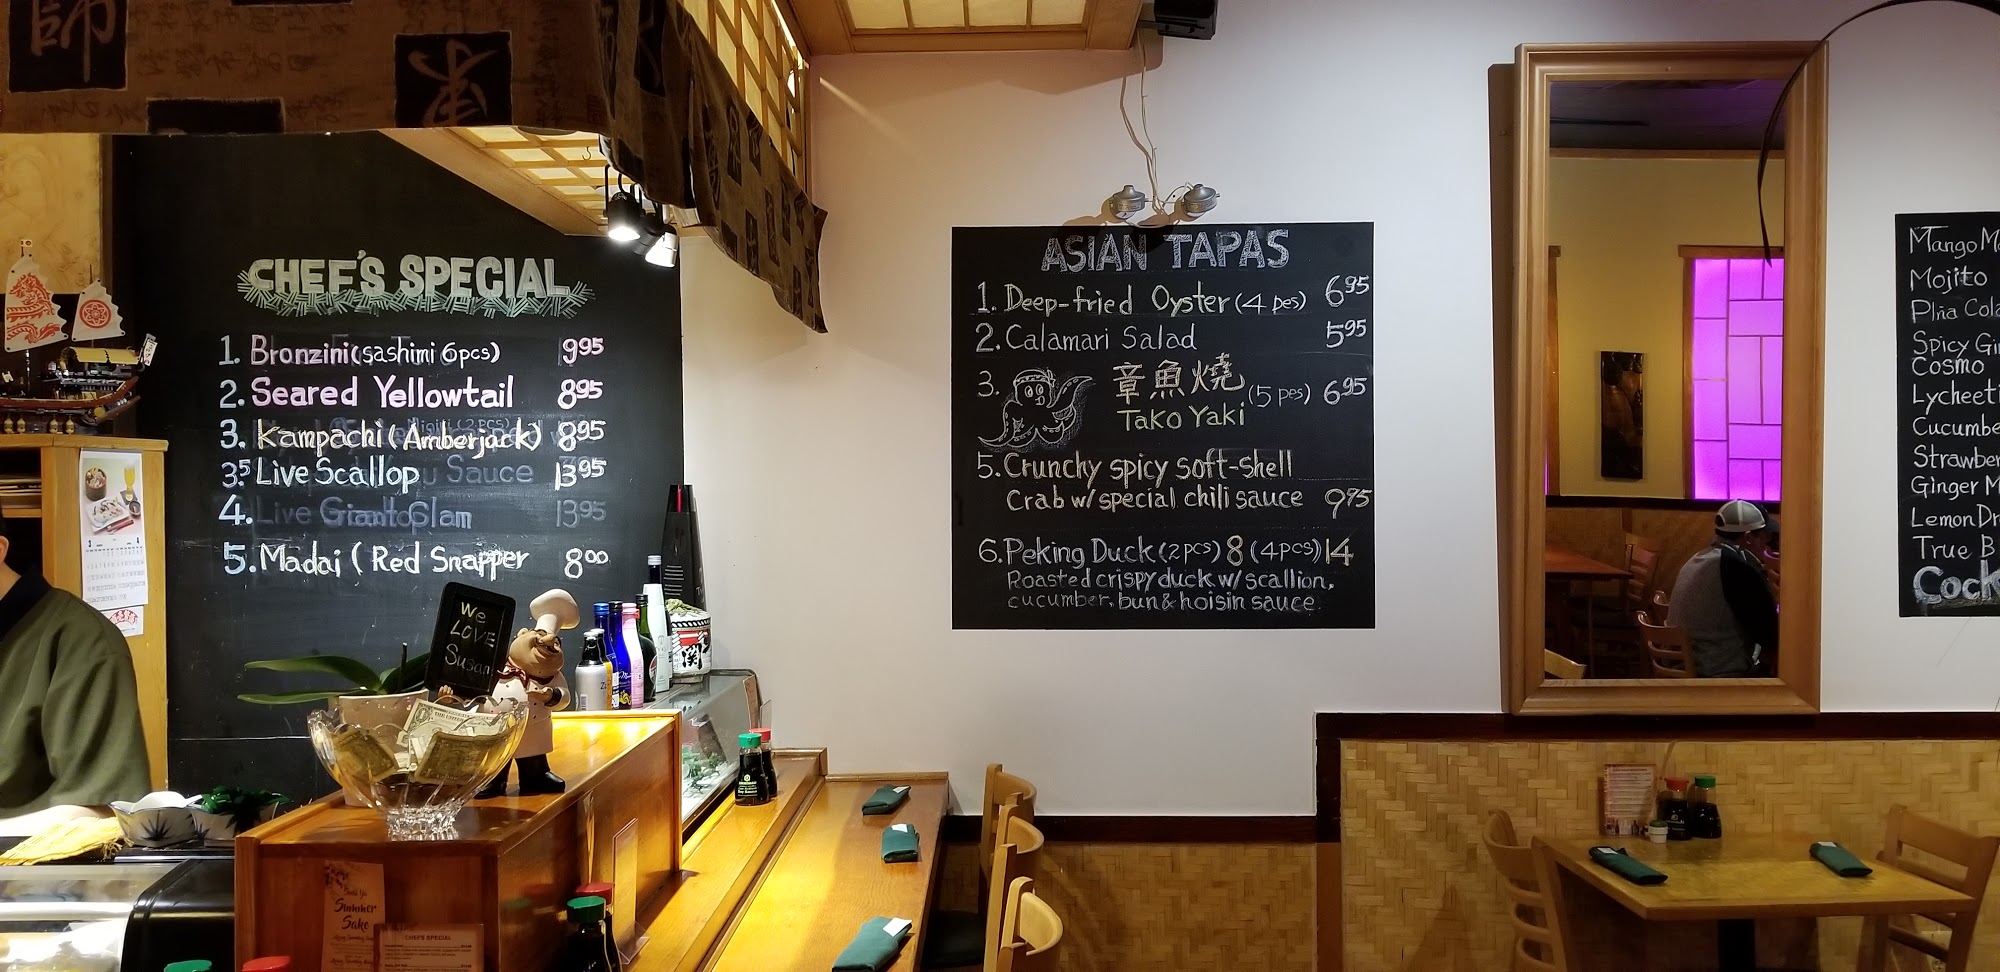 CHEF'S SPECIAL
1. Bronzini (sashimi 6pcs) 9.95
2. Seared Yellowtail 8.95
3. Kampachi (Amberjack) 8.95
3.5 Live Scallop 13.95
4. Live Giant Clam 13.95
5. Madai (Red Snapper 8.00
We
LOVE
Susan
ASIAN TAPAS
1. Deep-fried Oyster (4 pcs) 6.95
2. Calamari Salad 5.95
3. 章魚燒 (5 pcs) 6.95
Tako Yaki
5. Crunchy spicy soft-shell
Crab w/ special chili sauce 9.75
6. Peking Duck (2pcs) 8 (4pcs) 14
Roasted crispy duck w/ scallion,
cucumber, bun & hoisin sauce.
Mango M
Mojito
Piña Cola
Spicy Gin
Cosmo
Lycheeti
Cucumbe
Strawber
Ginger M
Lemon Dr
True B
Cock
Summer
Sake
CHEF'S SPECIAL